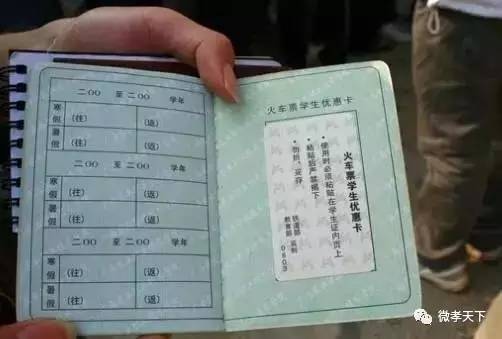 二〇〇 至 二〇〇 学年
寒假 (往) (返)
暑假 (往) (返)
二〇〇 至 二〇〇 学年
寒假 (往) (返)
暑假 (往) (返)
二〇〇 至 二〇〇 学年
寒假 (往) (返)
暑假 (往) (返)
火车票学生优惠卡
火车票学生优惠卡
·使用时必须粘贴在学生证内页上
粘贴后严禁揭下
·勿折、妥存
铁道部
教育部 监制
0603
微孝天下